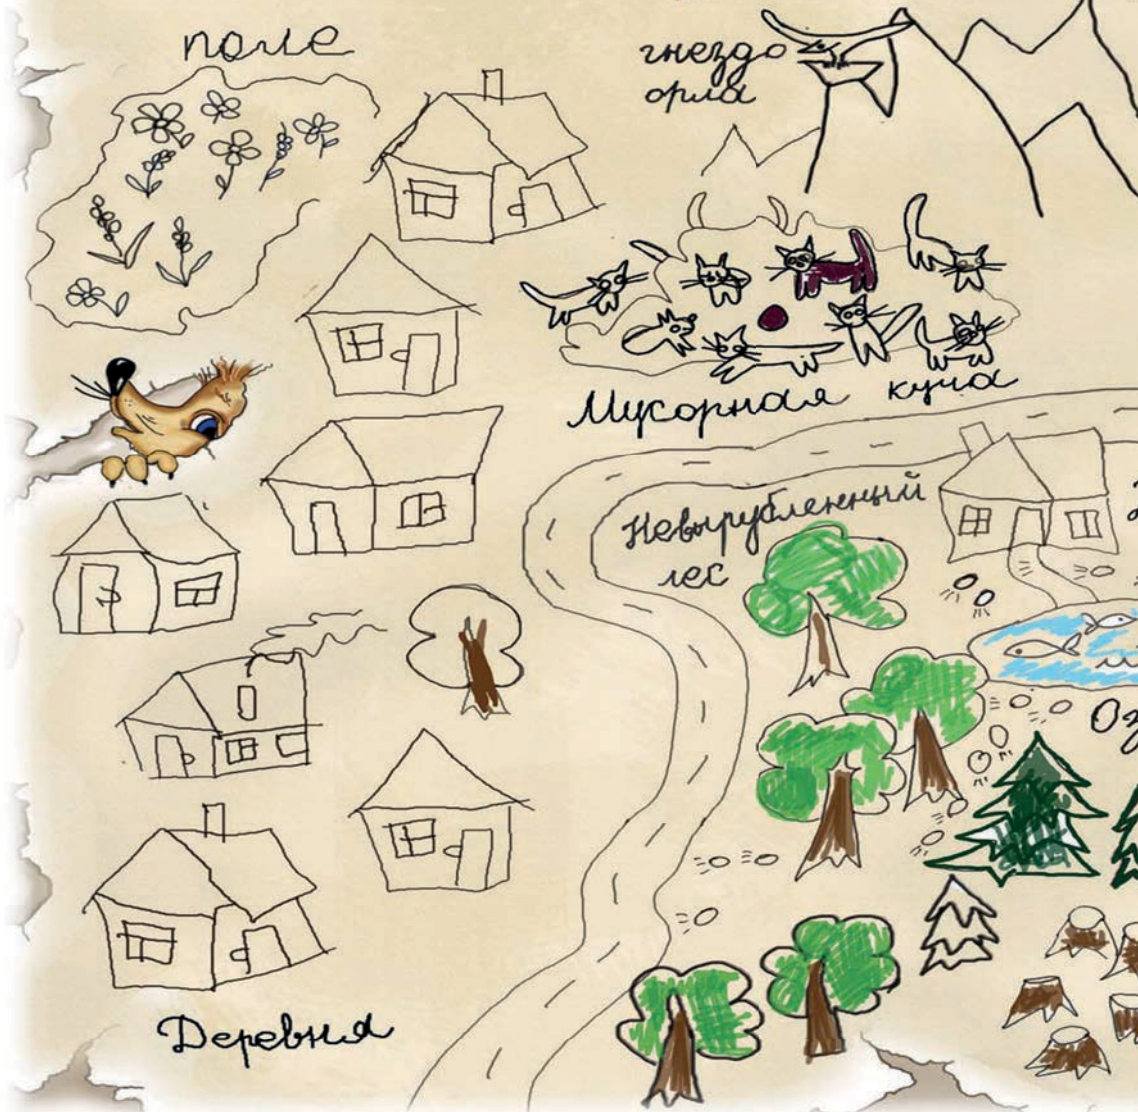 поле
гнездо
орла
Мусорная куча
Невырубленный
лес
Деревня